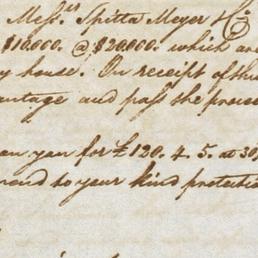 Mess.rs Spitta Meyer & Co
$10.000. @ $20.000. which are
y house. On receipt of this
antage and pass the procee
an you for £120. 4. 5. at 30
mend to your kind protectio